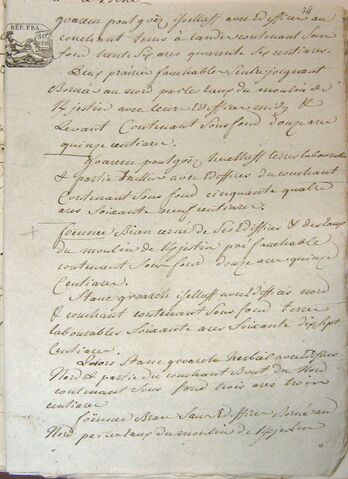 74
REP. FRA.
goarem poulgoëz ishellaff avec Ediffice au
couchant tenus à Lande contenant Sous
fond trente Six ares quarente Six centiares.
Deux prairie fauchable, Entrejoignant
Borné au nord par les Eaux du moulin de
Kjestin avec leurs Ediffice midy &
Levant Contenant Sous fond Douze are
quinze Centiare.
Goarem poulgoëz huellaff terre labourable
& partie taillis avec Ediffices du couchant
Contenant Sous fond cinquante quatre
ares Soixante neuf centiare.
foënnec Bien cerné de Ses Ediffices & des Eaux
du moulin de Kjestin pré fauchable
contenant Sous fond douze are quinze
Centiares.
Stanc groarch ishellaff avec Ediffices nord
& couchant contenant Sous fond terre
labourables Soixante ares Soixante dix Sept
Centiare.
Stanc groarch avec Ediffices
Nord & partie du couchant Bout du Nord
contenant Sous fond trois ares trois
centiare
foënnec Bran Sans Ediffice Borné au
Nord par les Eaux du moulin de Kjestin